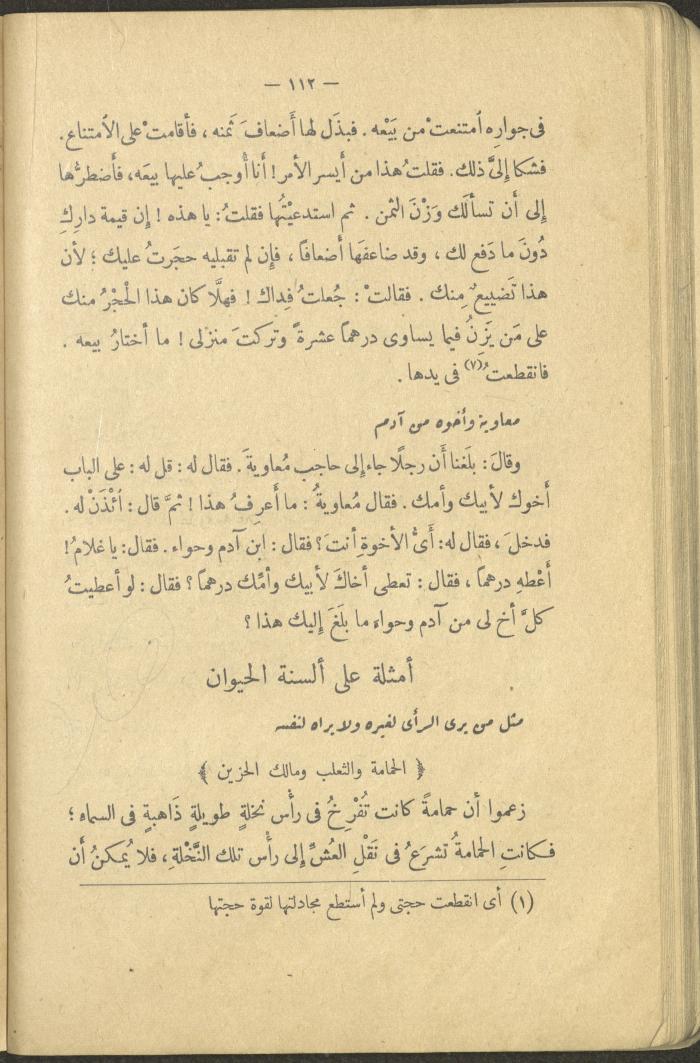 — ١١٢ —
فى جوارِه اُمتنعتْ من بَيْعه . فبذَل لها أَضعافَ ثَمنه ، فأقامتْ على الاُمتناع .
فشكا إِلىَّ ذلك . فقلتُ هذا من أَيسر الأمر ! أَنا أُوجبُ عليها بيعَه ، فأَضطرُّها
إلى أَن تسألَك وَزْنَ الثمن . ثم استدعيْتُها فقلتُ : يا هذه ! إِن قيمة دارِكِ
دُونَ ما دَفع لك ، وقد ضاعفَها أَضعافاً ، فإِن لم تقبليه حجَرتُ عليك ؛ لأن
هذا تَضييعٌ مِنك . فقالتْ : جُعلتُ فِداك ! فهلَّا كان هذا الْحجْرُ منك
على مَن يَزِنُ فيما يساوى درهماً عشرةً وتركتَ منزلى ! ما أختارُ بيعه .
فانقطعتُ (٧) فى يدها .
معاوية وأخوه من آدم
وقالَ : بلَغنا أَن رجلًا جاء إلى حاجب مُعاويةَ . فقال له : قل له : على الباب
أَخوك لأبيك وأمك . فقال مُعاويةُ : ما أَعرِفُ هذا ! ثمَّ قال : اُئْذَنْ له .
فدخلَ ، فقال له : أَىُّ الأخوةِ أنتَ ؟ فقال : ابن آدم وحواء . فقال : يا غلامُ !
أَعْطهِ درهماً ، فقال : تعطى أخاكَ لأبيك وأمِّك درهماً ؟ فقال : لو أعطيتُ
كلَّ أخ لى من آدم وحواء ما بلَغَ إليك هذا ؟
أمثلة على ألسنة الحيوان
مثل من يرى الرأى لغيره ولا يراه لنفسه
﴿ الحمامة والثعلب ومالك الحزين ﴾
زعموا أن حمامةً كانت تُفْرِخُ فى رأْس نخلةٍ طويلةٍ ذَاهبةٍ فى السماء ؛
فكانتِ الحمامةُ تشرَعُ فى نَقْلِ العُشِّ إِلى رأْس تلك النَّخْلةِ ، فلا يُمكنُ أَن
(١) أى انقطعت حجتى ولم أستطع مجادلتها لقوة حجتها